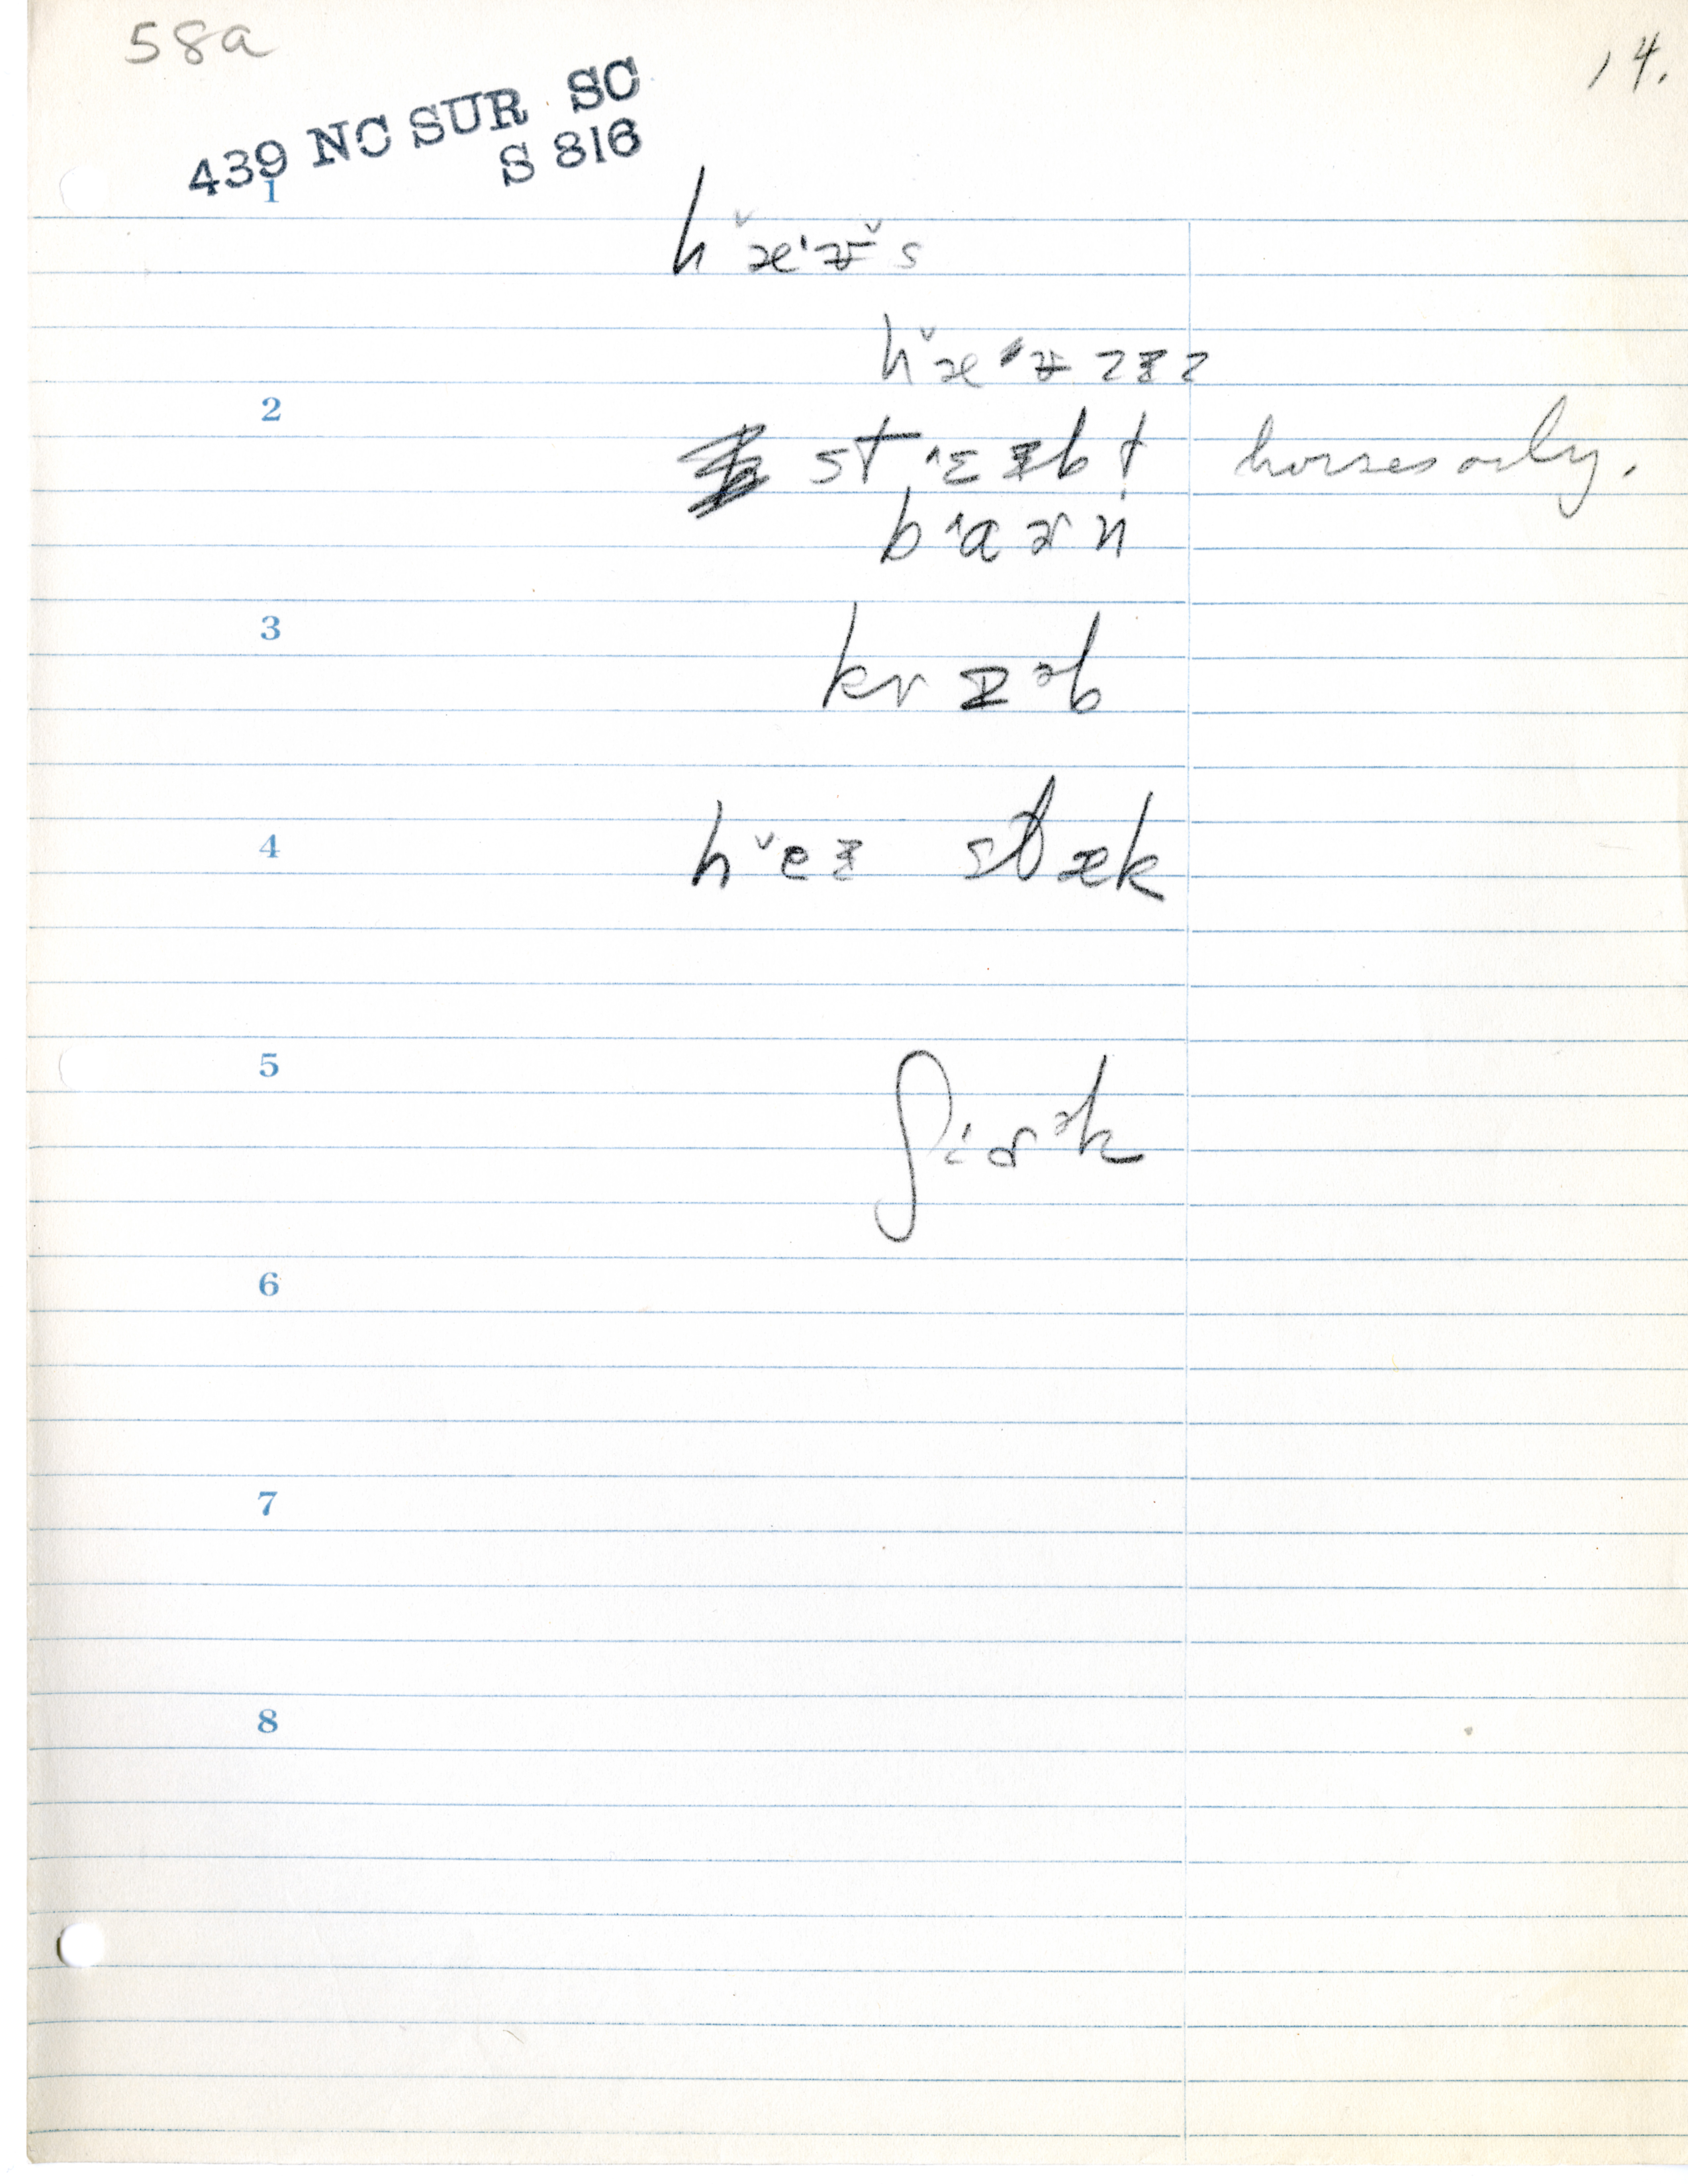 58a
14.
439 NC SUR SC
S 816
1
h˅æ'ʊ̵˅s
h˅æ'ʊ̵zɪ̵z
2
st^ɛɪ̵bɫ horses only.
b^aɚn
3
krɪəb
4
h˅eɪ̵ stæk
5
ʃiɚək
6
7
8